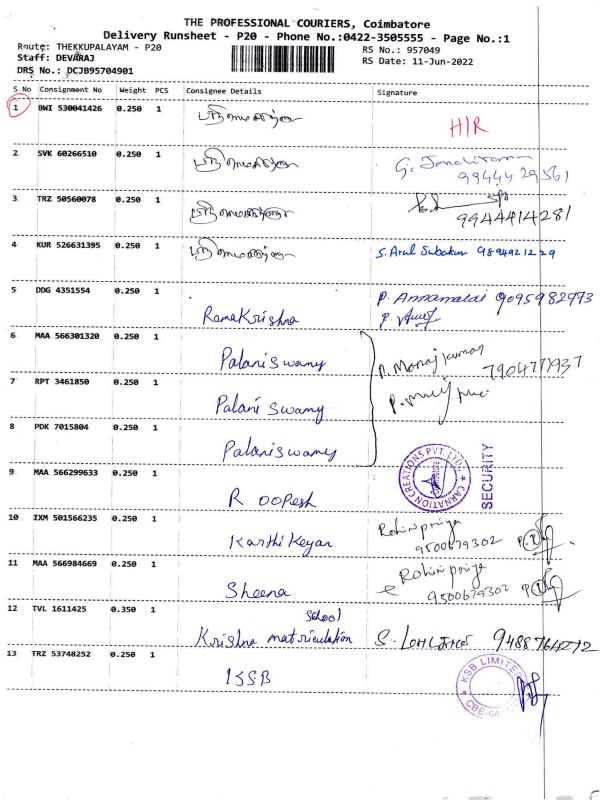 THE PROFESSIONAL COURIERS, Coimbatore
Delivery Runsheet - P20 - Phone No.:0422-3505555 - Page No.:1
Route: THEKKUPALAYAM - P20
Staff: DEVARAJ
DRS No.: DCJB95704901
RS No.: 957049
RS Date: 11-Jun-2022
S No Consignment No Weight PCS Consignee Details Signature
1 BWI 530041426 0.250 1 H/R
2 SVK 60266510 0.250 1
99444 29561
3 TRZ 50560078 0.250 1
9944414281
4 KUR 526631395 0.250 1 S. Arul 9894921229
5 DDG 4351554 0.250 1 P. Annamalai 9095982973
RamaKrishna P
6 MAA 566301320 0.250 1
Palaniswamy P. Manojkumar
7 RPT 3461850 0.250 1
Palani Swamy
8 PDK 7015804 0.250 1
Palaniswamy
CARNATION CREATIONS PVT. LTD.
SECURITY
9 MAA 566299633 0.250 1
Roopesh
10 IXM 501566235 0.250 1 Rohini priya
Karthikeyan 9500679302
11 MAA 566984669 0.250 1 Rohini priya
Sheena 9500679302
12 TVL 1611425 0.350 1 School
Krishna matriculation S. 9488764272
13 TRZ 53748252 0.250 1
KSB
KSB LIMITED
CBE-64